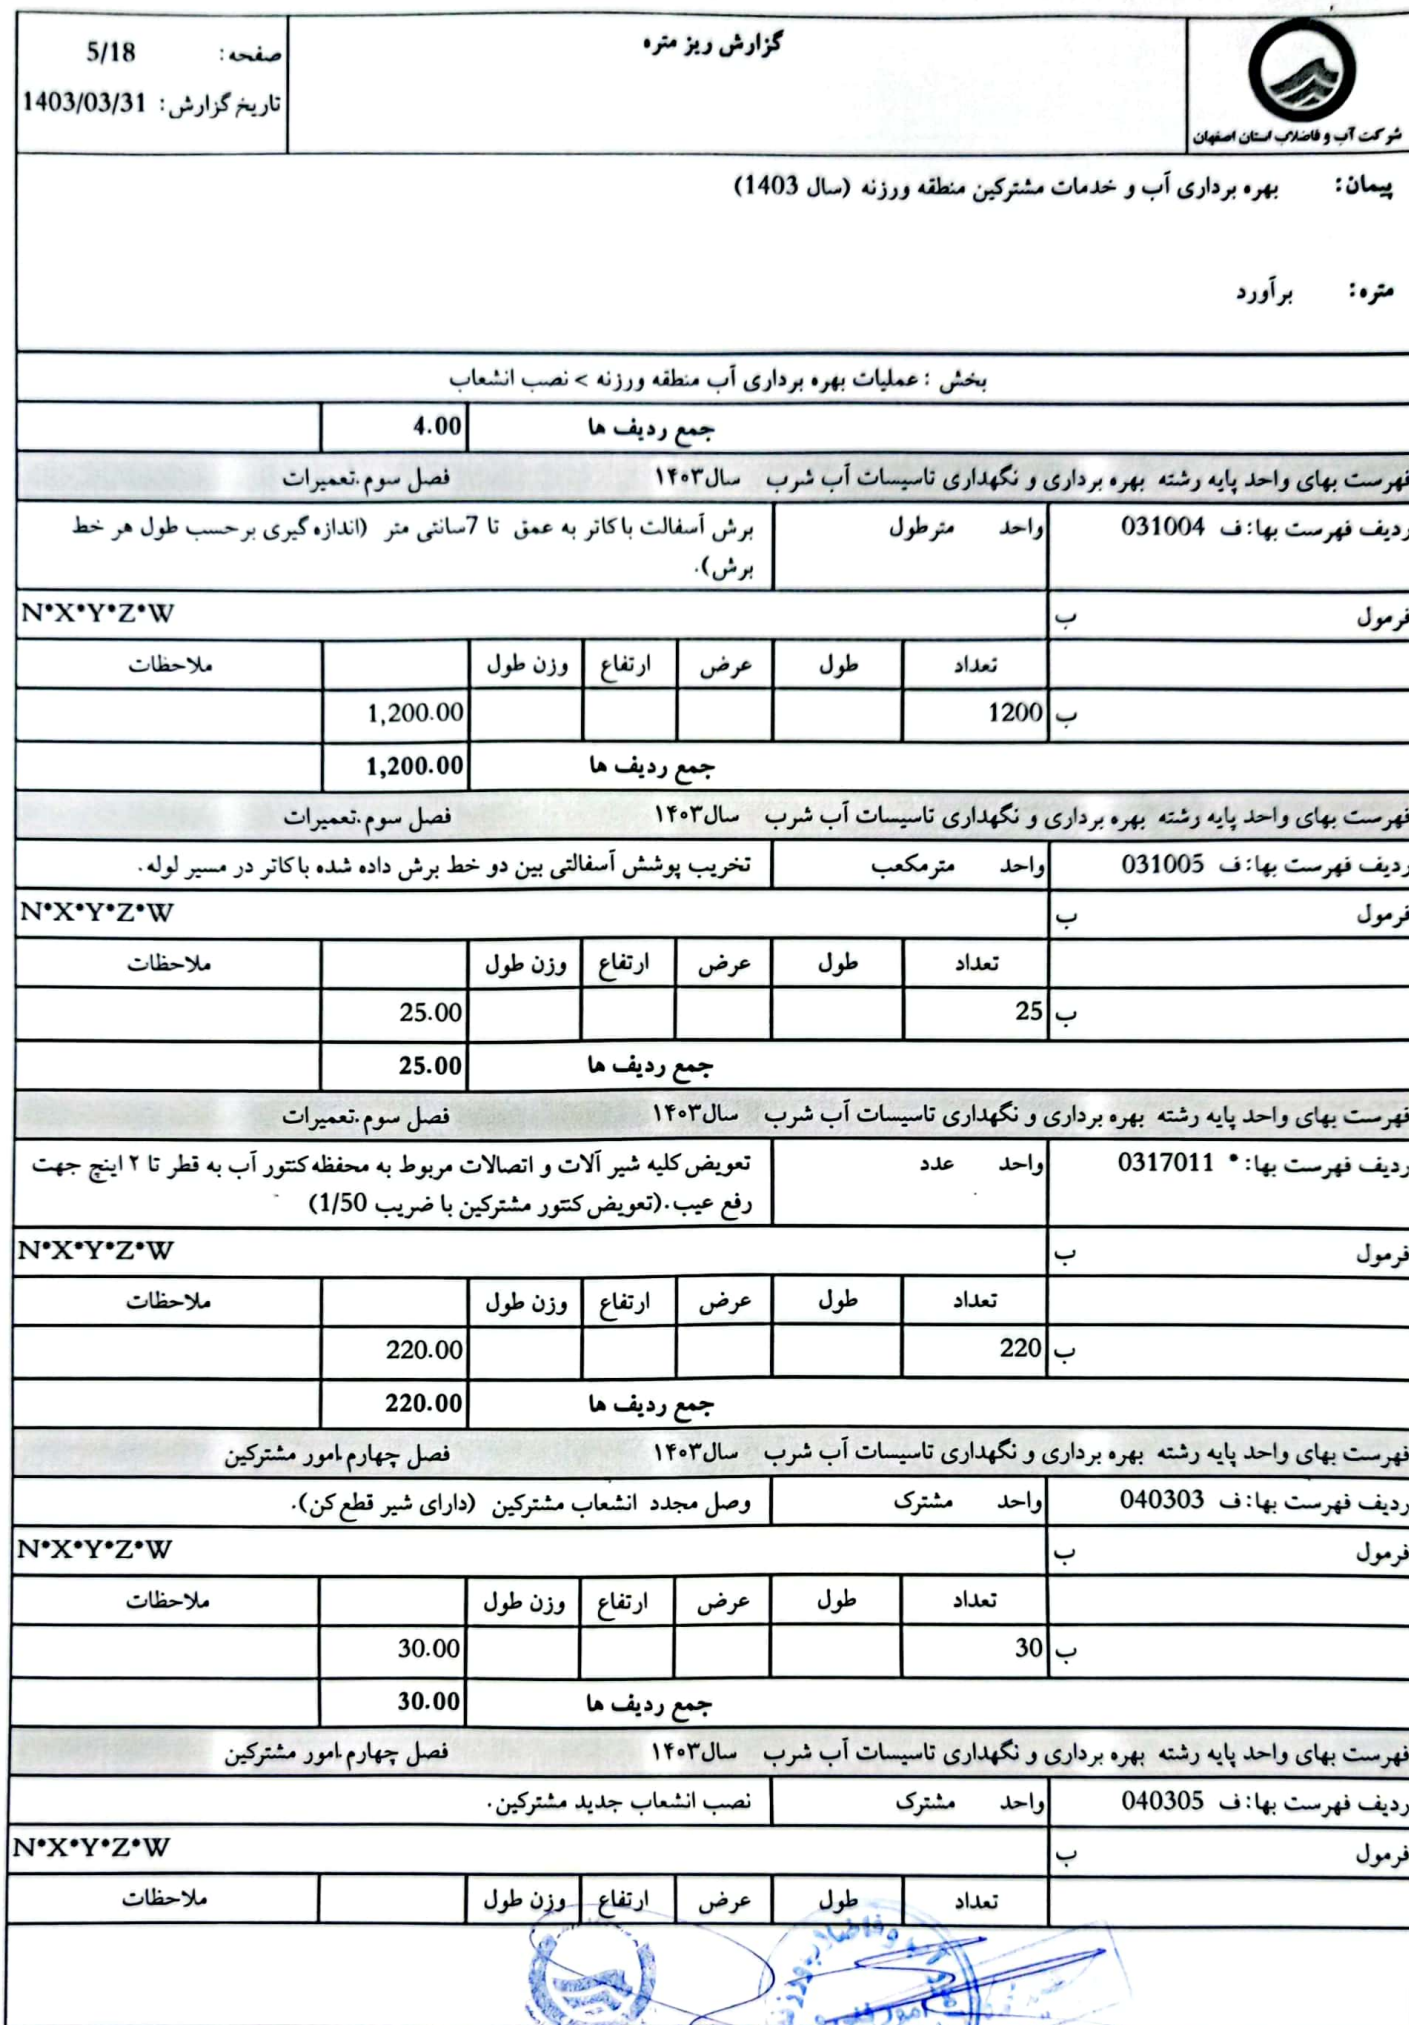 گزارش ریز متره
صفحه: 5/18
تاریخ گزارش: 1403/03/31
شرکت آب و فاضلاب استان اصفهان
پیمان: بهره برداری آب و خدمات مشترکین منطقه ورزنه (سال 1403)
متره: برآورد
بخش : عملیات بهره برداری آب منطقه ورزنه > نصب انشعاب
جمع ردیف ها 4.00
فهرست بهای واحد پایه رشته بهره برداری و نگهداری تاسیسات آب شرب سال۱۴۰۳ فصل سوم.تعمیرات
ردیف فهرست بها: ف 031004 واحد مترطول برش آسفالت با کاتر به عمق تا 7سانتی متر (اندازه گیری برحسب طول هر خط
برش).
فرمول ب N*X*Y*Z*W
تعداد طول عرض ارتفاع وزن طول ملاحظات
ب 1200 1,200.00
جمع ردیف ها 1,200.00
فهرست بهای واحد پایه رشته بهره برداری و نگهداری تاسیسات آب شرب سال۱۴۰۳ فصل سوم.تعمیرات
ردیف فهرست بها: ف 031005 واحد مترمکعب تخریب پوشش آسفالتی بین دو خط برش داده شده با کاتر در مسیر لوله.
فرمول ب N*X*Y*Z*W
تعداد طول عرض ارتفاع وزن طول ملاحظات
ب 25 25.00
جمع ردیف ها 25.00
فهرست بهای واحد پایه رشته بهره برداری و نگهداری تاسیسات آب شرب سال۱۴۰۳ فصل سوم.تعمیرات
ردیف فهرست بها: * 0317011 واحد عدد تعویض کلیه شیر آلات و اتصالات مربوط به محفظه کنتور آب به قطر تا ۲ اینچ جهت
رفع عیب.(تعویض کنتور مشترکین با ضریب 1/50)
فرمول ب N*X*Y*Z*W
تعداد طول عرض ارتفاع وزن طول ملاحظات
ب 220 220.00
جمع ردیف ها 220.00
فهرست بهای واحد پایه رشته بهره برداری و نگهداری تاسیسات آب شرب سال۱۴۰۳ فصل چهارم.امور مشترکین
ردیف فهرست بها: ف 040303 واحد مشترک وصل مجدد انشعاب مشترکین (دارای شیر قطع کن).
فرمول ب N*X*Y*Z*W
تعداد طول عرض ارتفاع وزن طول ملاحظات
ب 30 30.00
جمع ردیف ها 30.00
فهرست بهای واحد پایه رشته بهره برداری و نگهداری تاسیسات آب شرب سال۱۴۰۳ فصل چهارم.امور مشترکین
ردیف فهرست بها: ف 040305 واحد مشترک نصب انشعاب جدید مشترکین.
فرمول ب N*X*Y*Z*W
تعداد طول عرض ارتفاع وزن طول ملاحظات